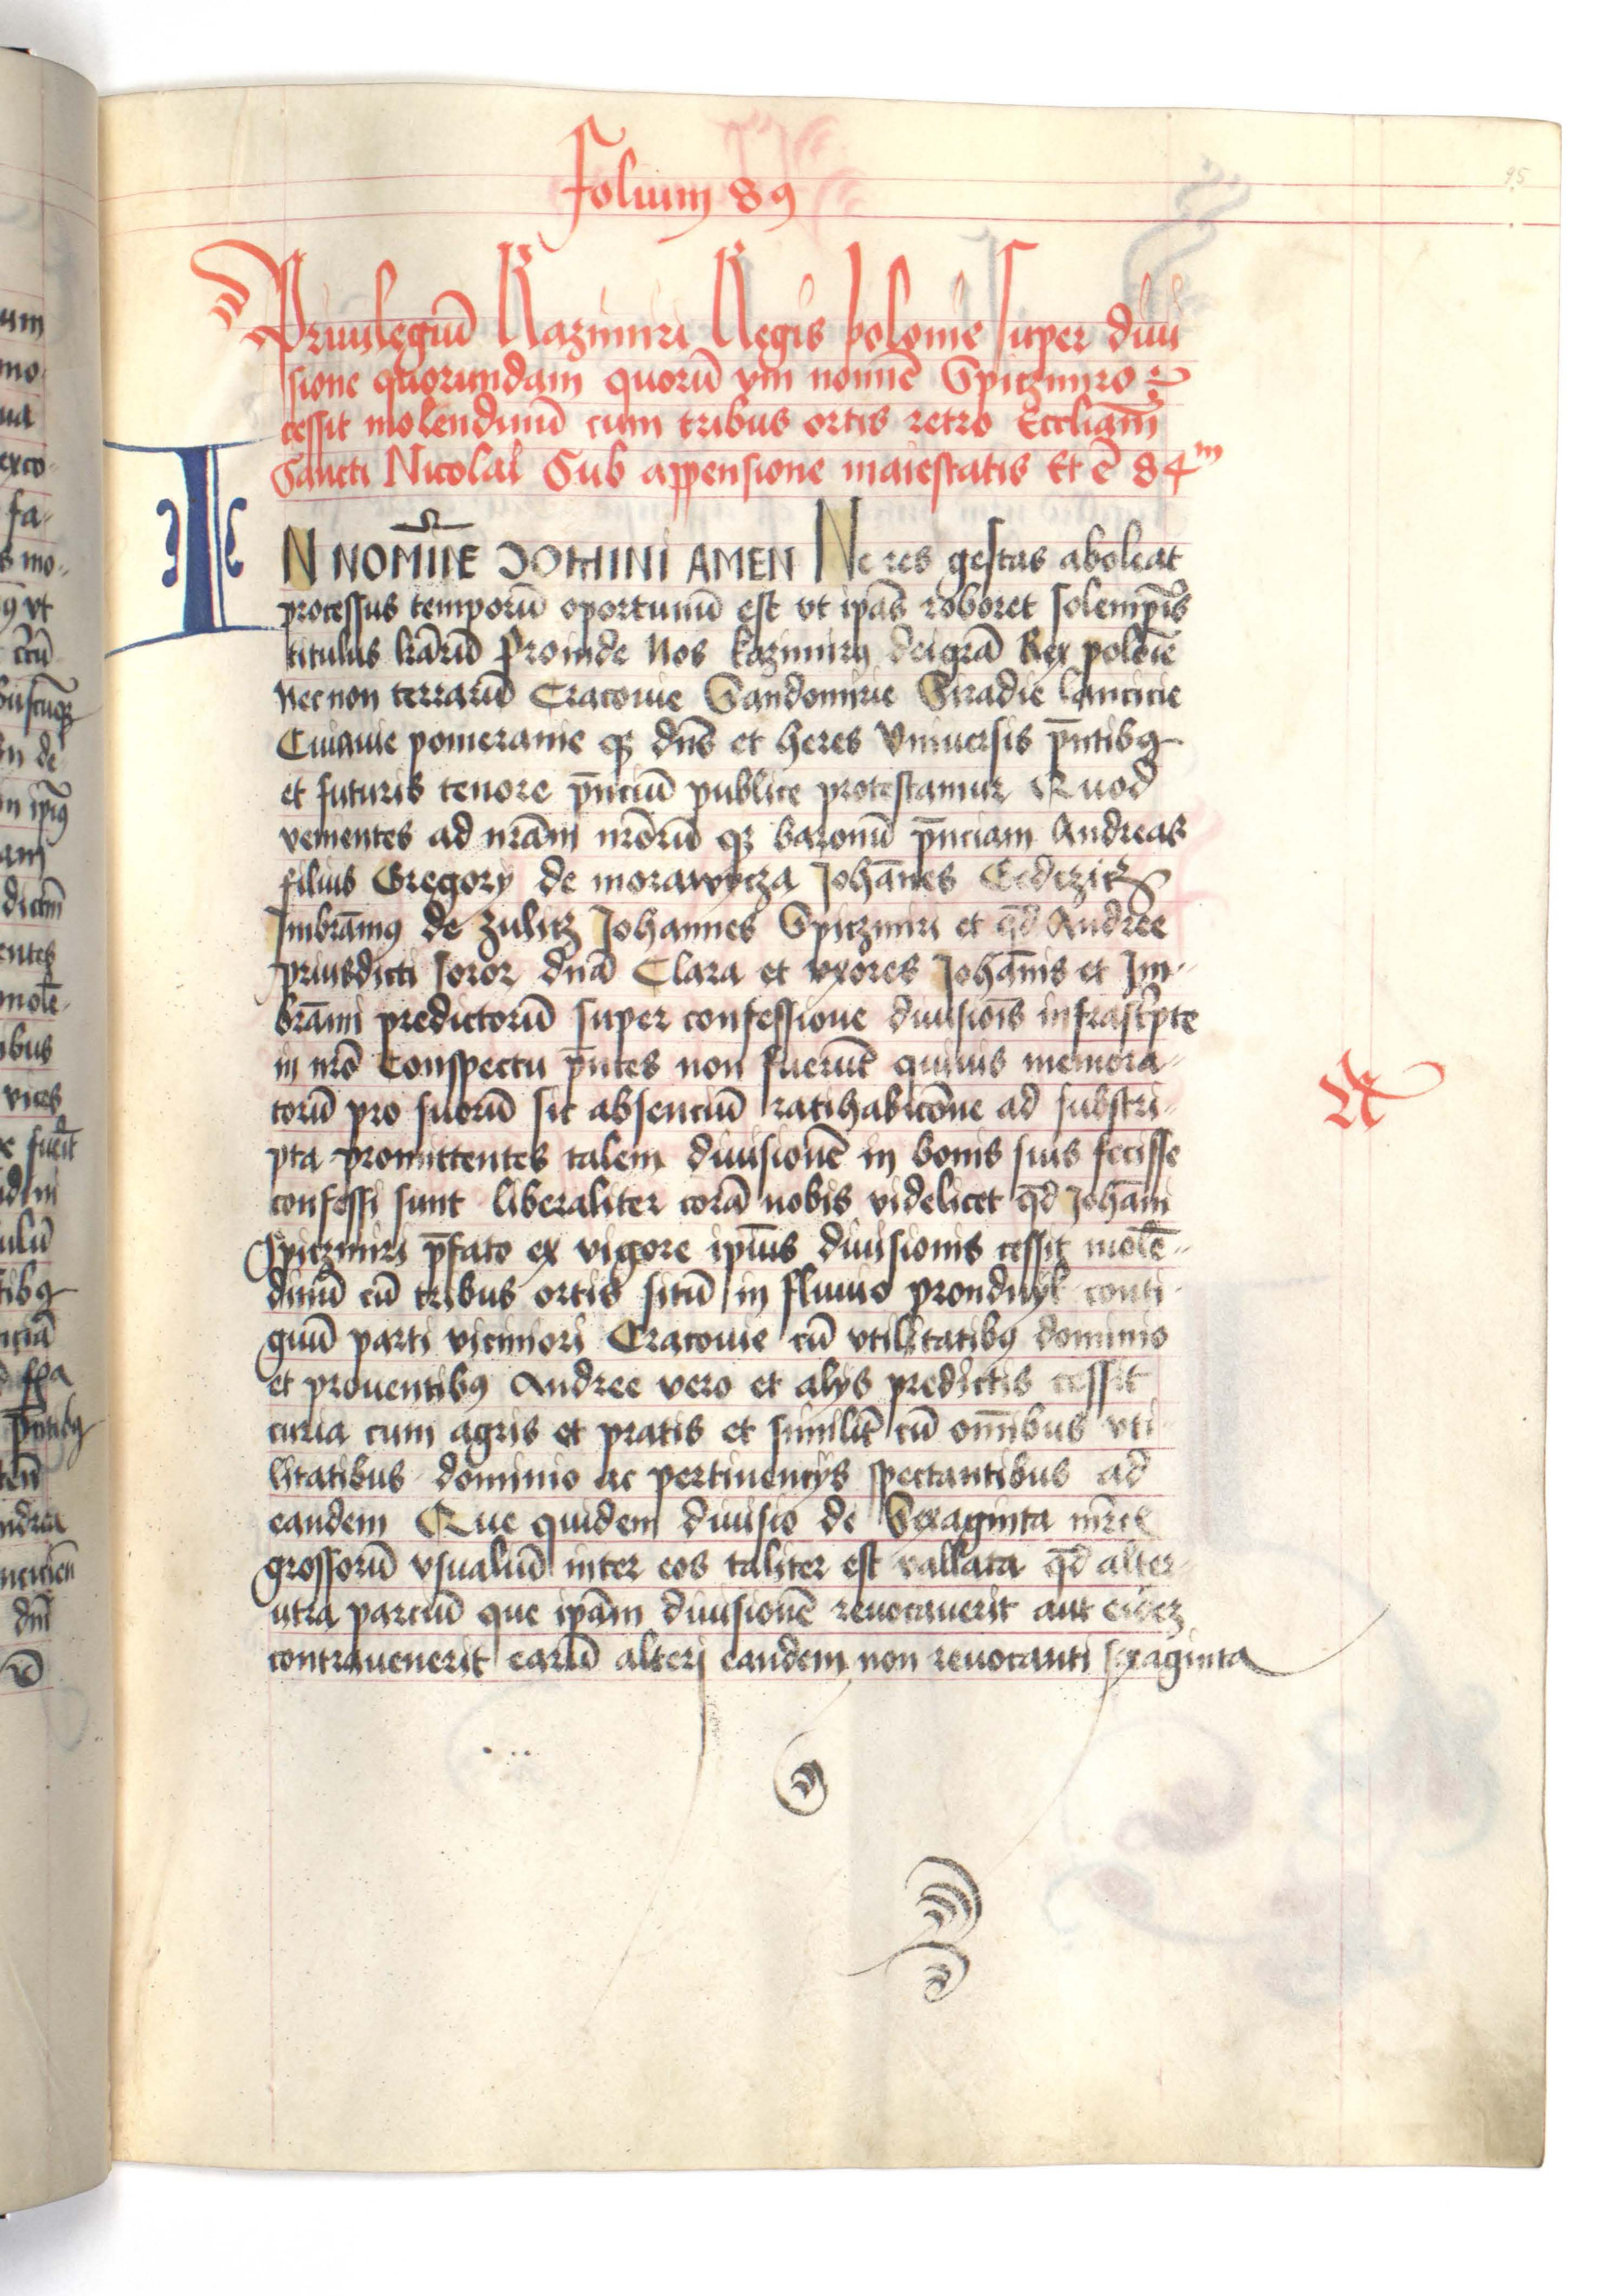 95
Folium 89
Priuilegiū Kazimiri Regis polonie super diui
sione quorundam quorū vni nomīe Spitzmiro
cessit molendinū cum tribus ortis retro Eccliam̄
Sancti Nicolai Sub appensione maiestatis Et ē 84m
IN NOMĪIE DOMINI AMEN Ne res gestas aboleat
processus temporū oportunū est vt ip̄as roboret solempnis
titulus lr̄arū Proinde Nos kazimirꝯ dei gr̄a Rex polōie
Nec non terrarū Cracouie Sandomirie Siradie lancicie
Cuiauie pomeranie qꝫ dn̄s et heres Vniuersis p̄ntibꝯ
et futuris tenore p̄nciū publice protestamur Quod
venientes ad nr̄am nrōrū qꝫ baronū p̄nciam Andreas
filius Gregorÿ de morawycza Johān̄es
Imbrāmꝯ de zulitz Johannes Spitzmiri et qd̄ Andree
priusdicti soror dn̄a Clara et vxores Johānis et Im-
brāmi predictorū super confessione diuisiōis infrascripte
in nrō Conspectu p̄ntes non fuerūt quiuis memora-
torū pro suorū sic absenciū ratihabicōne ad substri-
pta promittentes talem diuisionē in bonis suis fecisse
confessi sunt liberaliter corā nobis videlicet qd̄ Johāni
Spitzmiri p̄fato ex vigore ipīus diuisionis cessit molē-
dinū cū tribus ortis sitū in fluuio prondnyk conti-
guū parti viciniori Cracouie cū vtilitatibꝯ dominio
et prouentibꝯ Andree vero et alÿs predictis cessit
curia cum agris et pratis et similit̄ cū om̄ibus vti-
litatibus dominio ac pertinencÿs spectantibus ad
eandem Que quidem diuisio de Sexaginta mr̄cis
grossorū vsualiū inter eos taliter est vallata qd̄ alter-
utra parciū que ip̄am diuisionē reuocauerit aut eidez
contrauenerit earū alteri eandem non reuocanti sexaginta